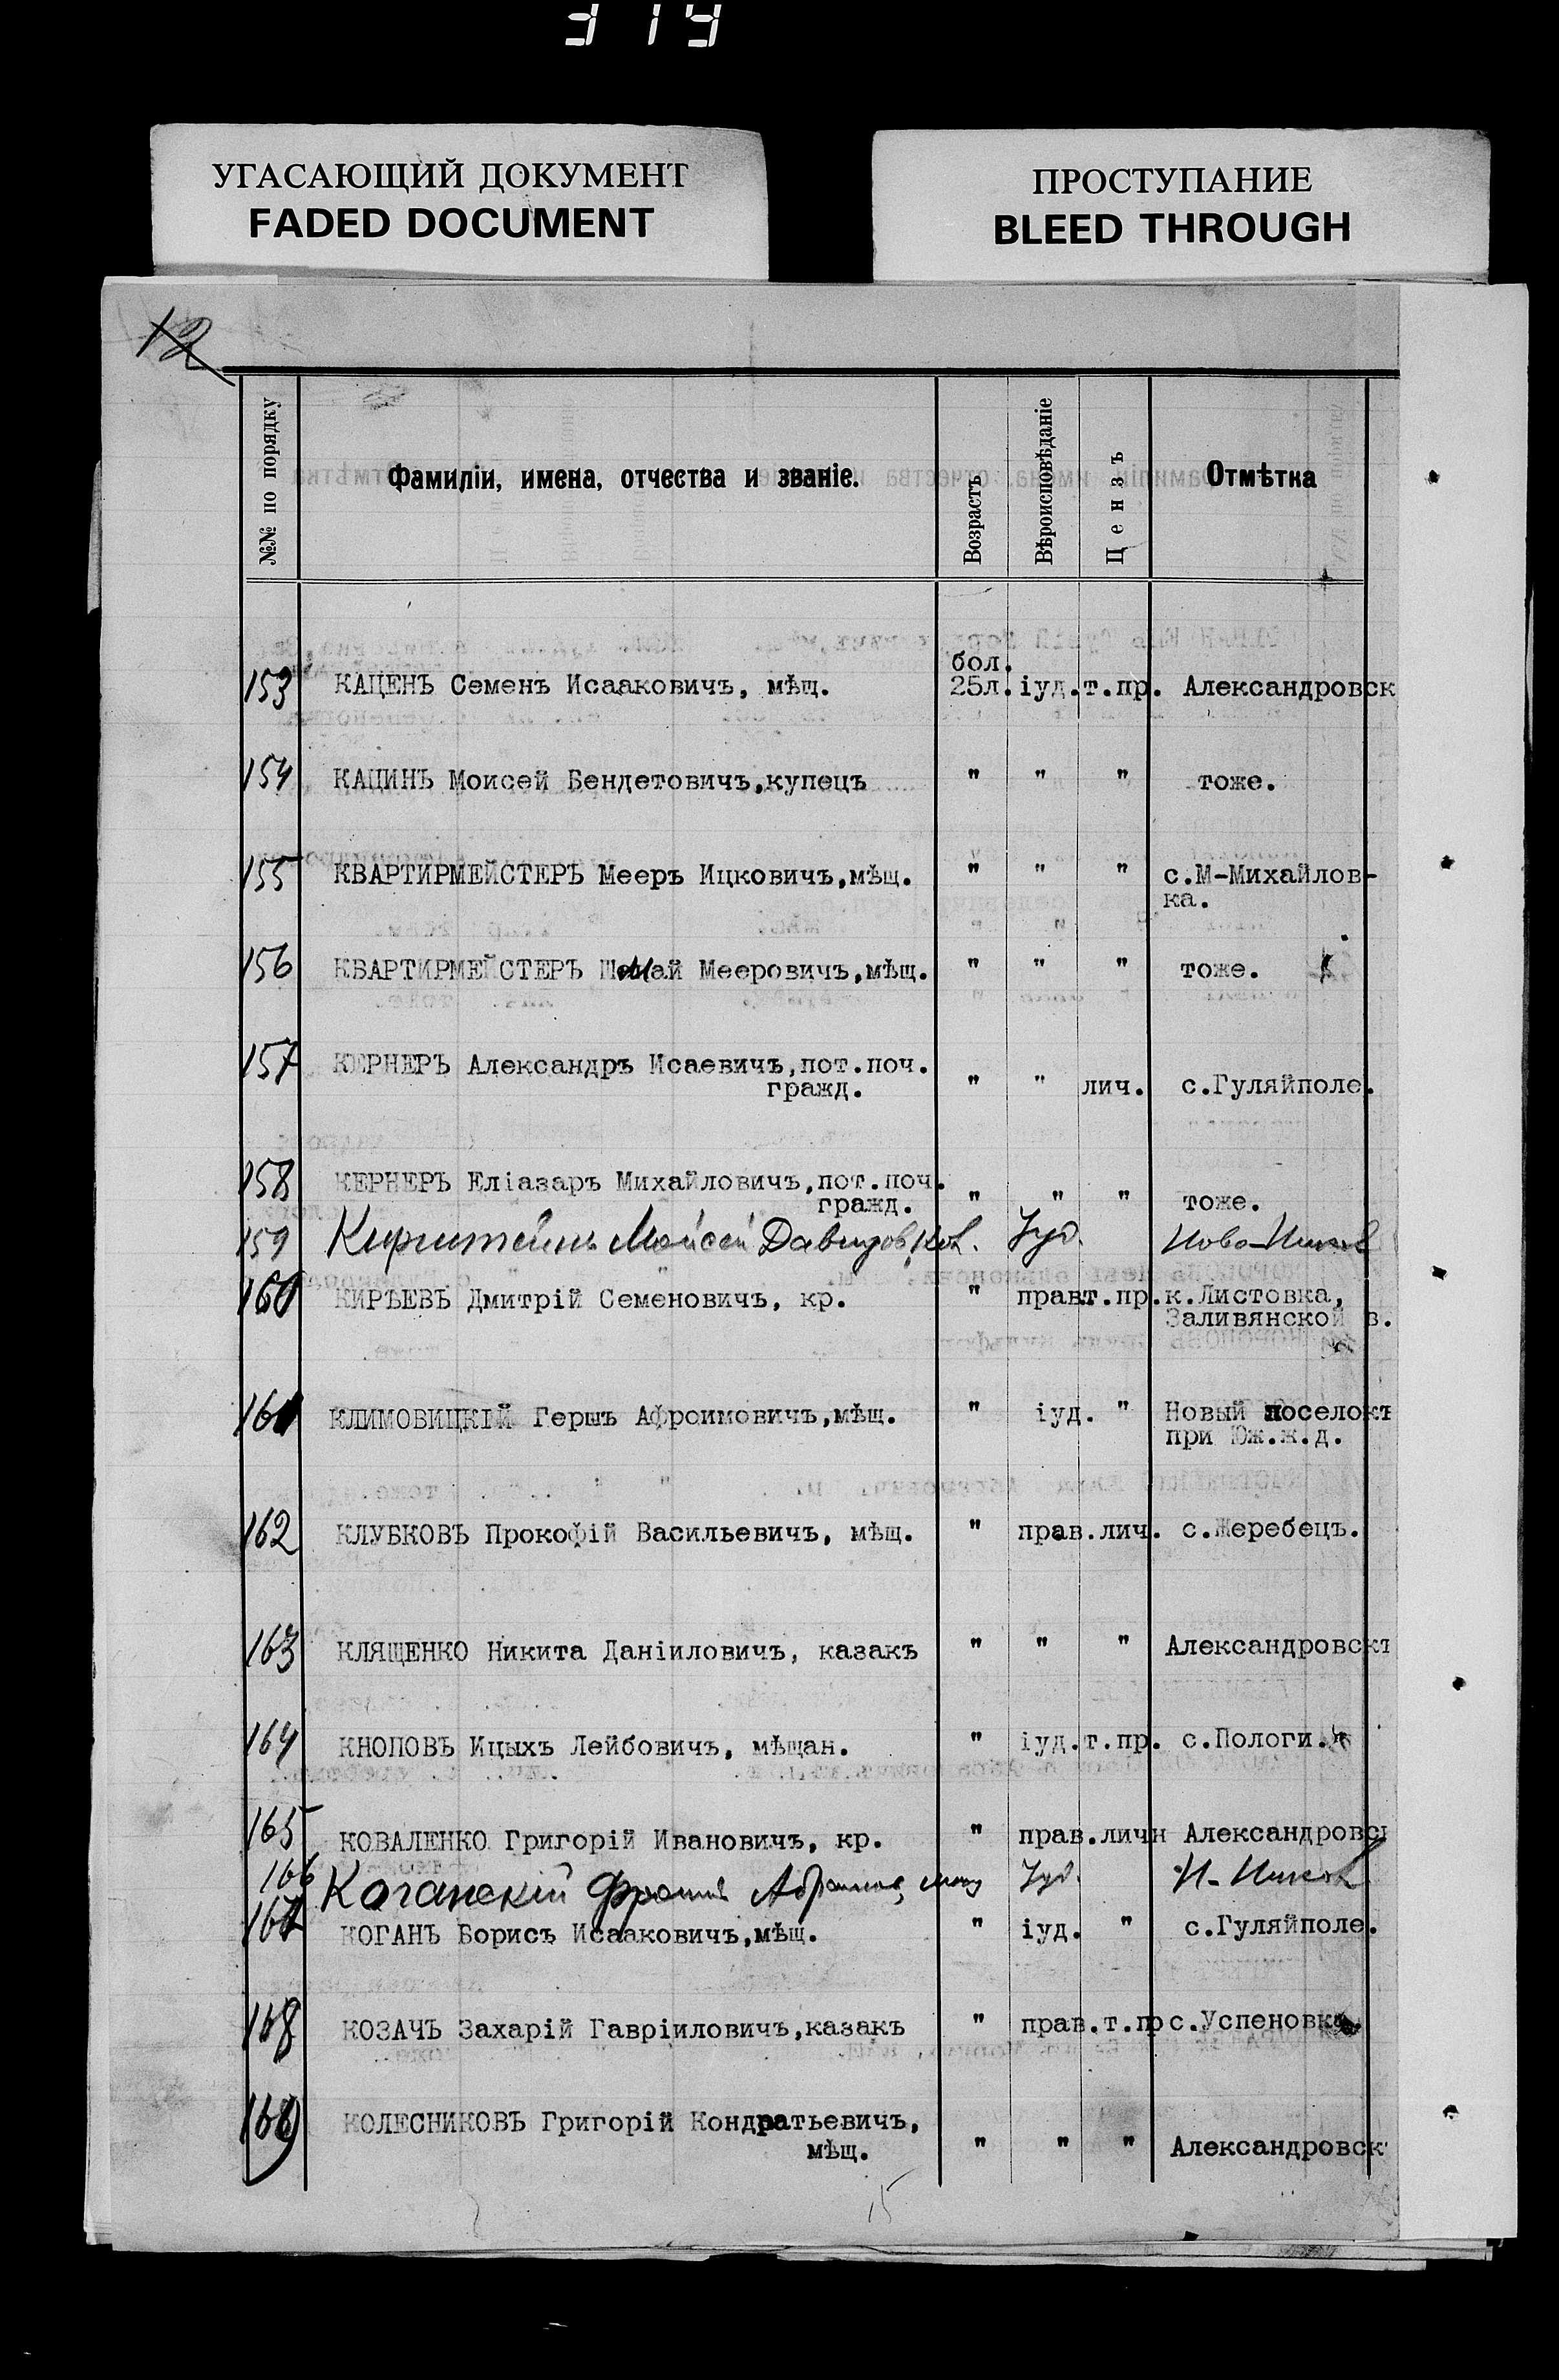 319
УГАСАЮЩИЙ ДОКУМЕНТ
FADED DOCUMENT
ПРОСТУПАНИЕ
BLEED THROUGH
12
№№ по порядку Фамиліи, имена, отчества и званіе. Возрастъ Вѣроисповѣданіе Цензъ Отмѣтка
бол.
153 КАЦЕНЪ Семенъ Исааковичъ, мѣщ. 25л. іуд. т.пр. Александровск
154 КАЦИНЪ Моисей Бендетовичъ,купецъ " " " тоже.
155 КВАРТИРМЕЙСТЕРЪ Мееръ Ицковичъ,мѣщ. " " " с.М-Михайлов-
ка.
156 КВАРТИРМЕЙСТЕРЪ Мееровичъ,мѣщ. " " " тоже.
157 КЕРНЕРЪ Александръ Исаевичъ,пот.поч.
гражд. " " лич. с.Гуляйполе.
158 КЕРНЕРЪ Еліазаръ Михайловичъ,пот.поч.
гражд. " " " тоже.
159 Кирштейнъ Мойсей Давидов, Іуд. Ново-
160 КИРѢЕВЪ Дмитрій Семеновичъ, кр. " прав т.пр. к.Листовка,
Заливянской в.
161 КЛИМОВИЦКІЙ Гершъ Афроимовичъ,мѣщ. " іуд. " Новый поселокъ
при Юж.ж.д.
162 КЛУБКОВЪ Прокофій Васильевичъ, мѣщ. " прав. лич. с.Жеребецъ.
163 КЛЯЩЕНКО Никита Даніиловичъ, казакъ " " " Александровскъ
164 КНОПОВЪ Ицыхъ Лейбовичъ, мѣщан. " іуд. т.пр. с.Пологи.
165 КОВАЛЕНКО Григорій Ивановичъ, кр. " прав. личн Александровс
166 Коганскій Абрамов, Іуд. Н-
167 КОГАНЪ Борисъ Исааковичъ,мѣщ. " іуд. " с.Гуляйполе.
168 КОЗАЧЪ Захарій Гавріиловичъ,казакъ " прав. т.пр с.Успеновка.
169 КОЛЕСНИКОВЪ Григорій Кондратьевичъ,
мѣщ. " " " Александровск
15